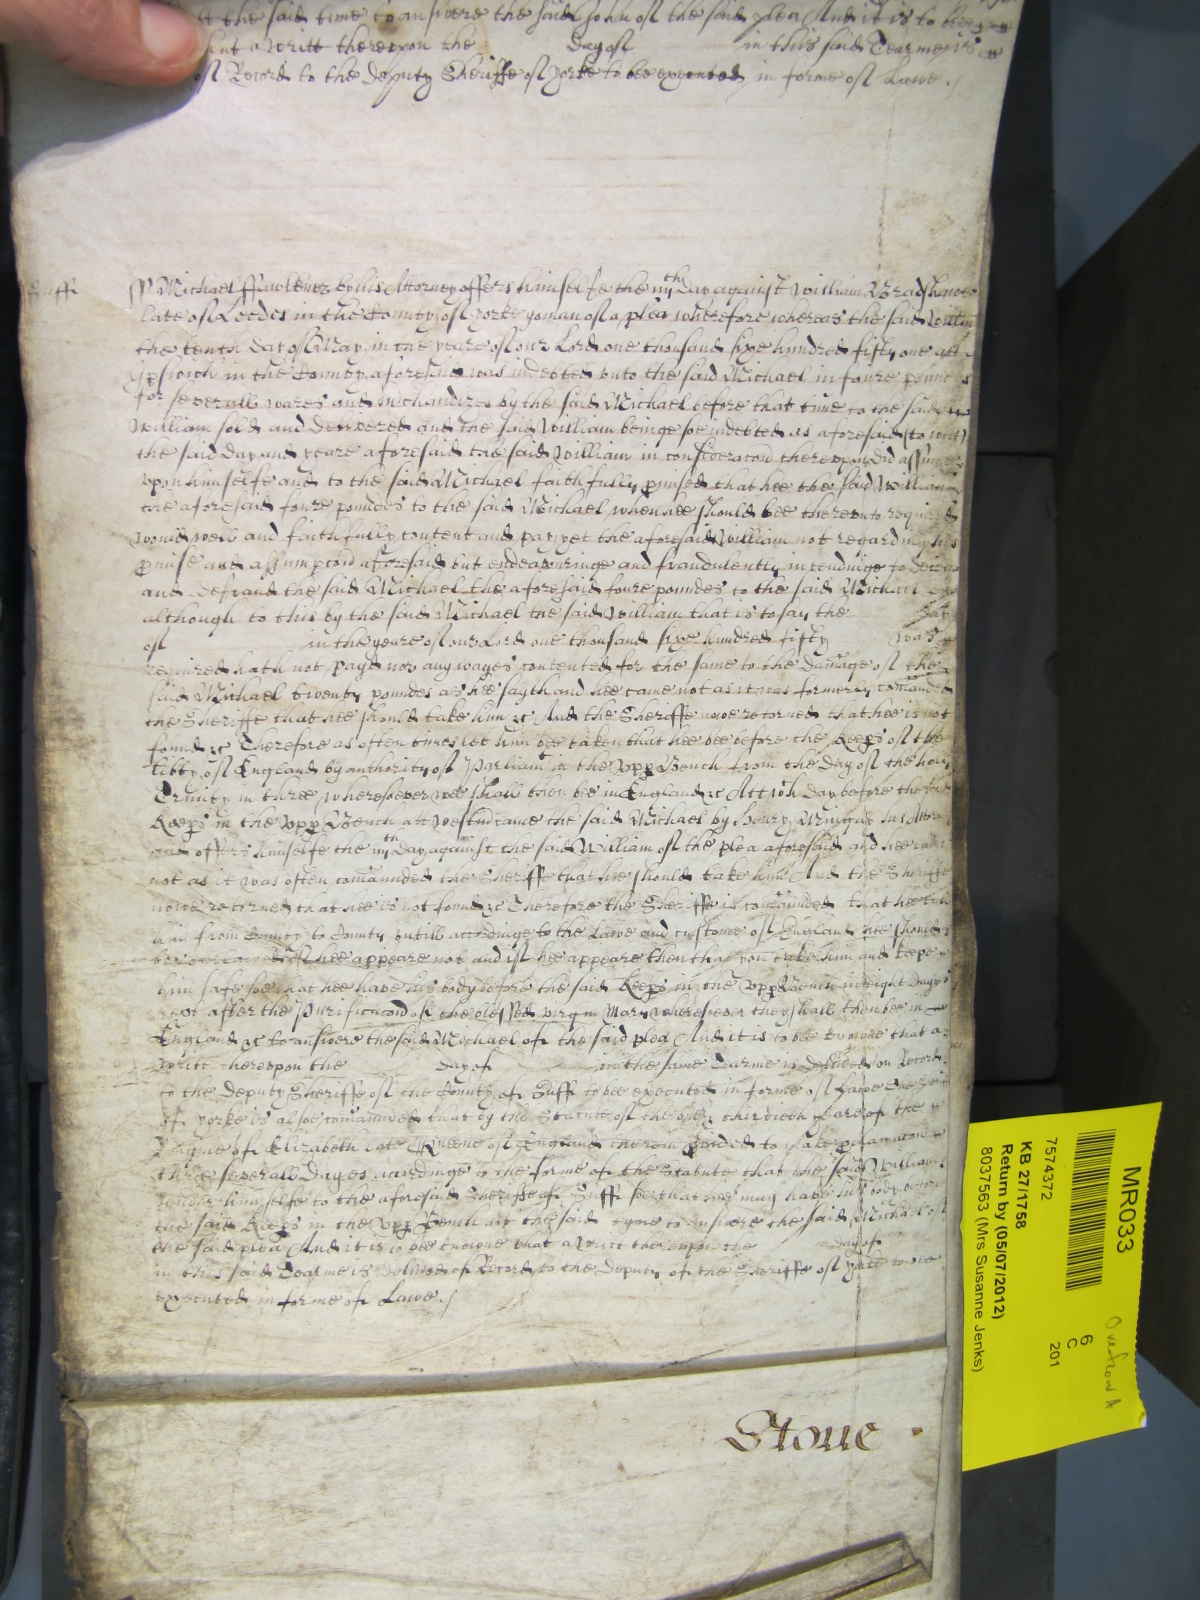 att the said time to answere the said John of the said plea And it is to bee
that a writt thereupon the day of in this said Tearme is
of Record to the deputy Sheriffe of yorke to bee executed in forme of Lawe ./
Suff
ss Michael by his Attorney offers himselfe the iiijth day against William Bradshawe
late of Leedes in the County of yorke yoman of a plea wherefore whereas the said William
the tenth day of May in the yeare of our Lord one thousand sixe hundred fifty one att
Ipswich in the County aforesaid was indebted unto the said Michael in foure pounds
for severall wares and mchandizes by the said Michael before that time to the said
William sold and delivered and the said William beinge soe indebted as aforesaid (to witt)
the said day and yeare aforesaid the said William in consideracon thereupon did assume
upon himselfe and to the said Michael faithfully pmised that hee the said William
the aforesaid foure poundes to the said Michael when hee should bee thereunto required
would well and faithfully content and pay yet the aforesaid William not regardinge his
pmise and assumpcon aforesaid but endeavouringe and fraudulently intendinge to deceive
and defraud the said Michael the aforesaid foure poundes to the said Michael
although to this by the said Michael the said William that is to say the day
of in the yeare of our Lord one thousand sixe hundred fifty was
required hath not payd nor any wayes contented for the same to the damage of the
said Michael twenty poundes as hee sayth and hee came not as it was formerly comanded
the Sheriffe that hee should take him &c And the Sheriffe nowe retorned that hee is not
found &c Therefore as often times let him bee taken that hee bee before the Keeps of the
libty of England by authority of Parliamt in the upp Bench from the day of the holy
Trinity in three wheresoever shall then bee in England &c Att day before the
Keeps in the upp Bench att Westm came the said Michael by Henry his Attorn
and offers himselfe the iiijth day against the said William of the plea aforesaid and hee came
not as it was often comaunded the Sheriffe that hee should take him And the Sheriffe
nowe retorned that hee is not found &c Therefore the Sheriffe is comaunded that hee
him from County to County untill accordinge to the Lawe and custome of England hee should
bee outlawed if hee appeare not and if hee appeare then that you take him and keepe
him safe soe that hee have his body before the said Keeps in the upp Bench in eight dayes
next after the Purificacon of the blessed virgin Mary wheresoever they shall then bee in
England &c to answere the said Michael of the said plea And it is to bee knowne that a
writt thereupon the day of in the same Tearme is delived on Record
to the deputy Sheriffe of the County of Suff to bee executed in forme of Lawe
of yorke is alsoe comaunded that by the Statute of the one & thirtieth yeare of the
Raigne of Elizabeth late Queene of England therein pvided to make pclamacon
three severall dayes accordinge to the forme of the Statute that the said William
render himselfe to the aforesaid Sheriffe of Suff soe that hee may have his body
the said Keeps in the upp Bench att the said tyme to answere the said Michael of
the said plea And it is to bee knowne that a writt thereupon the day of
in this said Tearme is delived of Record to the deputy of the Sheriffe of yorke to bee
executed in forme of Lawe ./
Stone
MR033
7574372
KB 27/1758
Return by (05/07/2012)
8037563 (Mrs Susanne Jenks)
6
C
201
Overflow A